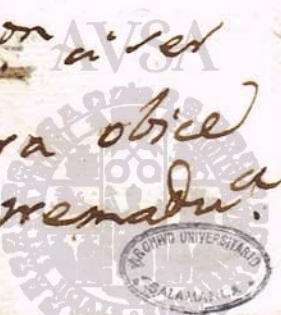 on á ser
AVSA
ra obice
remadu.ª
ARCHIVO UNIVERSITARIO
SALAMANCA